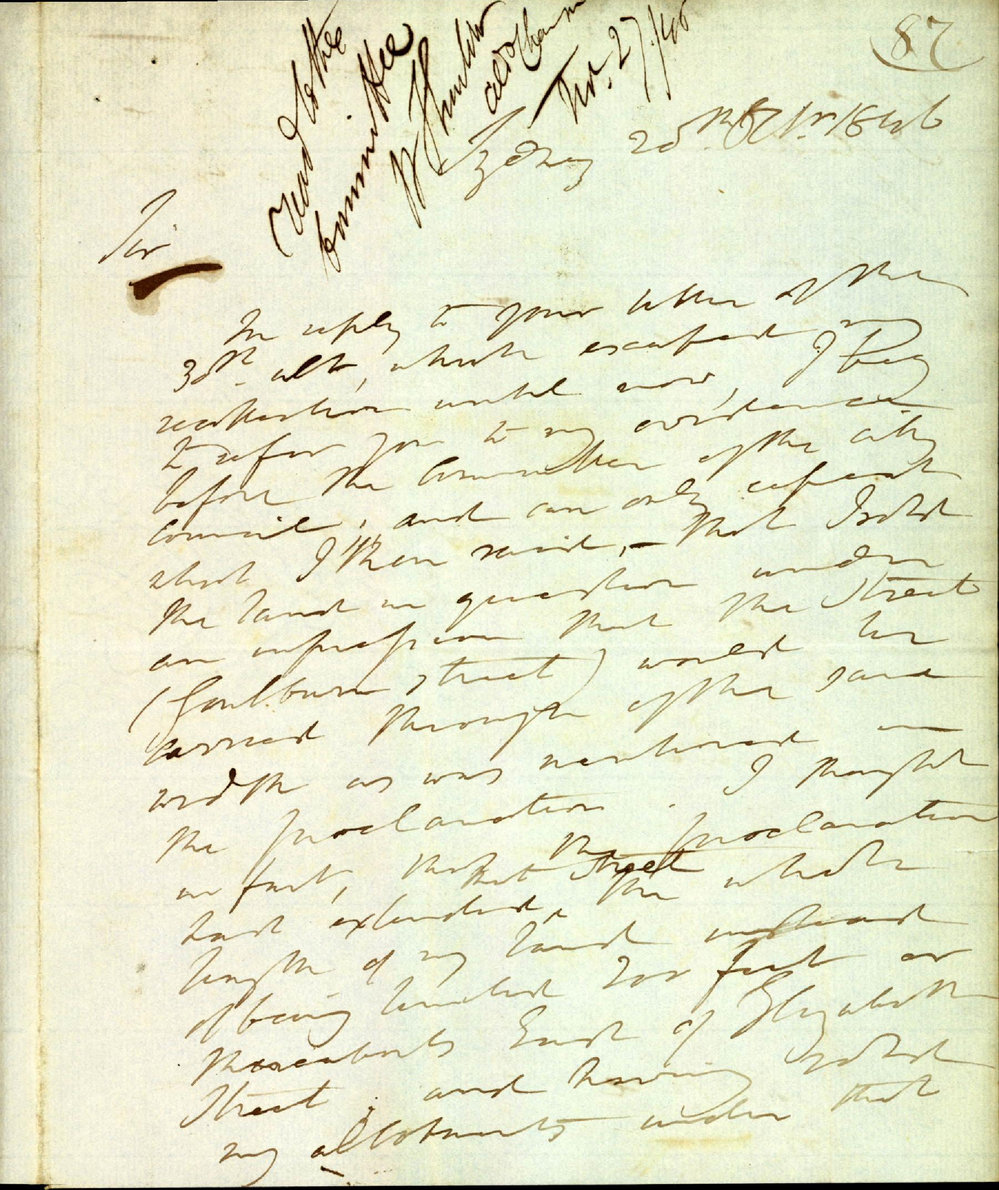 87
Read to the
Committee
Nov. 27/46
Sydney 20th 1846
Sir
In reply to your letter of the
30th ulto, which escaped my
recollection until now, I beg
to refer you to my evidence
before the Committee of the City
Council, and can only repeat
what I then said, – that I sold
the land in question under
an impression that the Street
(Goulburn Street) would be
carried through of the same
width as was mentioned in
the proclamation. I thought
in fact, that the proclamation
had extended that Street the whole
length of my land instead
of being limited 200 feet or
thereabouts East of Elizabeth
Street. and having sold
my allotments under that